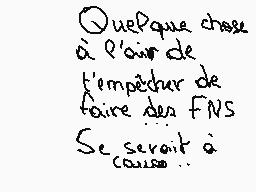 Quelque chose
à l'air de
t'empêcher de
faire des FNS
...
Se serait à
cause ..